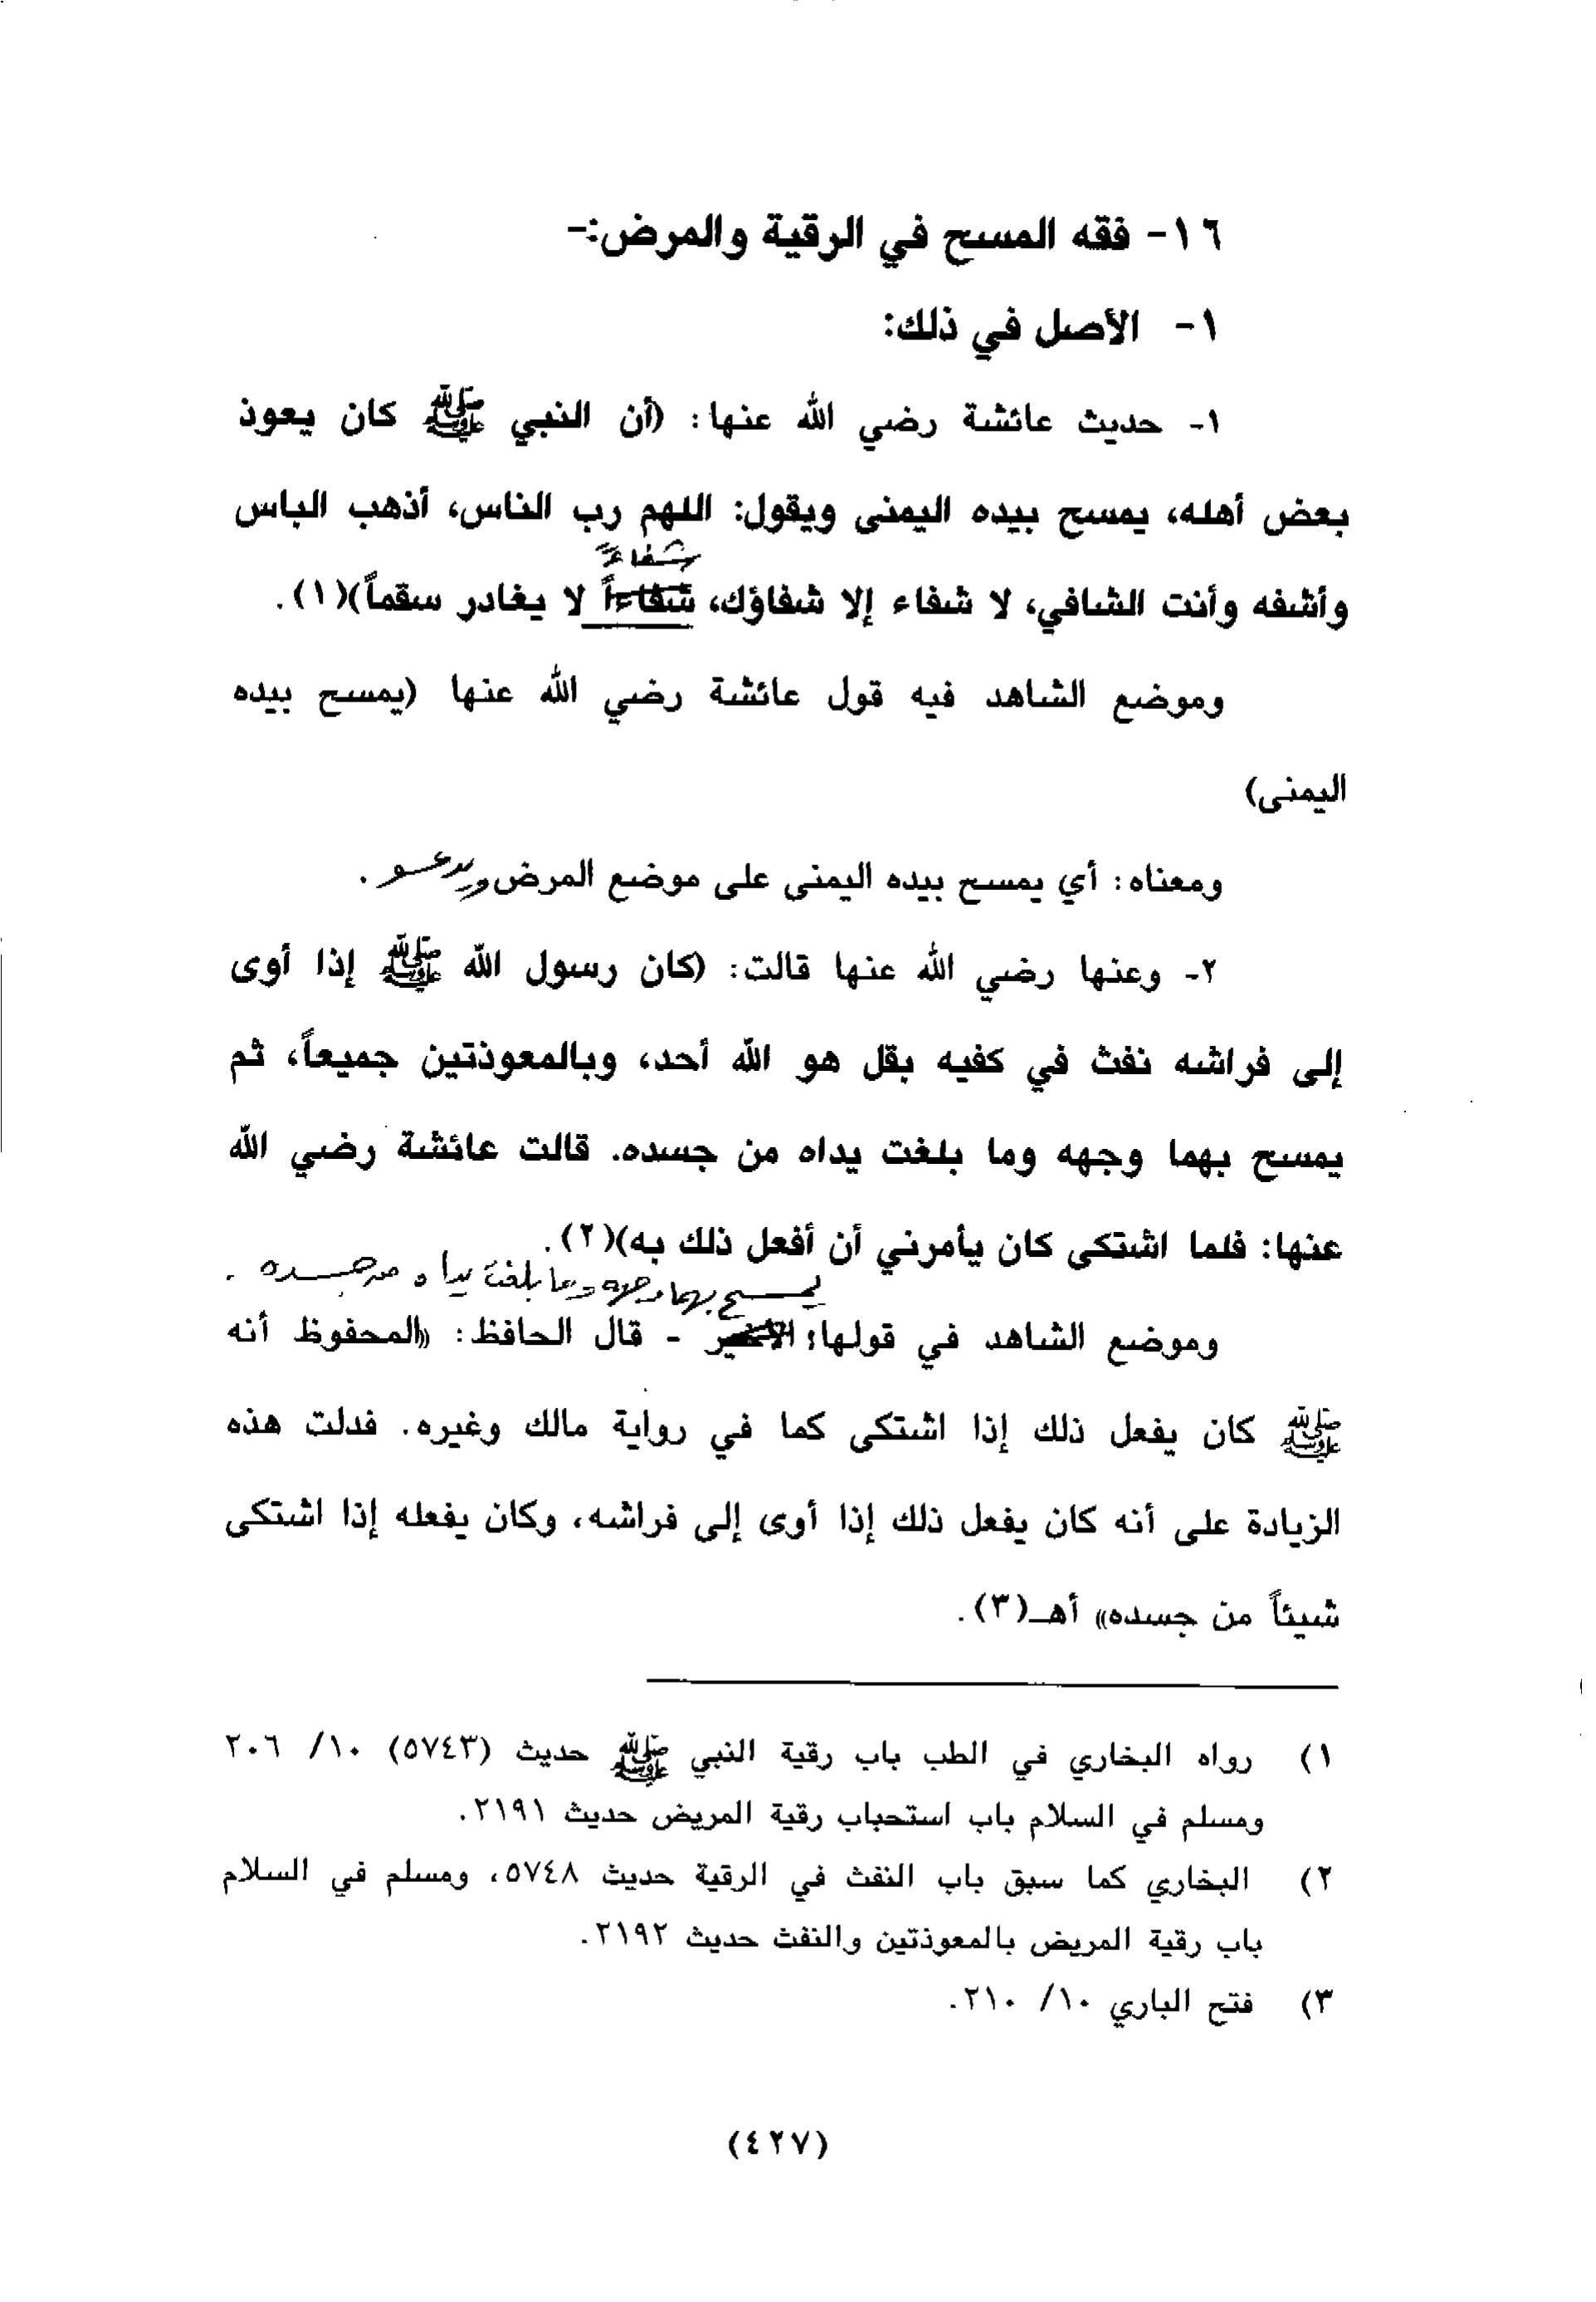 ١٦- فقه المسح في الرقية والمرض:-
١- الأصل في ذلك:
١- حديث عائشة رضي الله عنها: (أن النبي ﷺ كان يعوذ
بعض أهله، يمسح بيده اليمنى ويقول: اللهم رب الناس، أذهب الباس
شفاءً
وأشفه وأنت الشافي، لا شفاء إلا شفاؤك، شفاءاً لا يغادر سقماً)(١).
وموضع الشاهد فيه قول عائشة رضي الله عنها (يمسح بيده
اليمنى)
ومعناه: أي يمسح بيده اليمنى على موضع المرض ويدعو.
٢- وعنها رضي الله عنها قالت: (كان رسول الله ﷺ إذا أوى
إلى فراشه نفث في كفيه بقل هو الله أحد، وبالمعوذتين جميعاً، ثم
يمسح بهما وجهه وما بلغت يداه من جسده. قالت عائشة رضي الله
عنها: فلما اشتكى كان يأمرني أن أفعل ذلك به)(٢).
يمسح بهما وجهه وما بلغت يداه من جسده.
وموضع الشاهد في قولها: الأخير - قال الحافظ: «المحفوظ أنه
ﷺ كان يفعل ذلك إذا اشتكى كما في رواية مالك وغيره. فدلت هذه
الزيادة على أنه كان يفعل ذلك إذا أوى إلى فراشه، وكان يفعله إذا اشتكى
شيئاً من جسده» أهـ(٣).
١) رواه البخاري في الطب باب رقية النبي ﷺ حديث (٥٧٤٣) ١٠/ ٢٠٦
ومسلم في السلام باب استحباب رقية المريض حديث ٢١٩١.
٢) البخاري كما سبق باب النفث في الرقية حديث ٥٧٤٨، ومسلم في السلام
باب رقية المريض بالمعوذتين والنفث حديث ٢١٩٢.
٣) فتح الباري ١٠/ ٢١٠.
(٤٢٧)